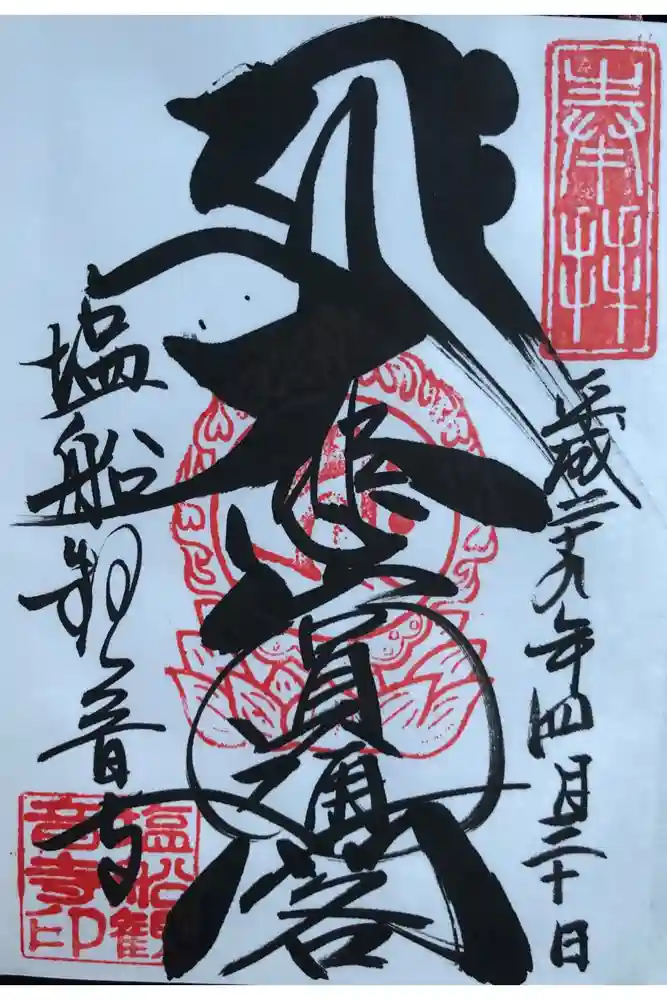 奉拝
平成二十九年四月二十日
大悲圓通閣
塩船観音寺
塩船観音寺印